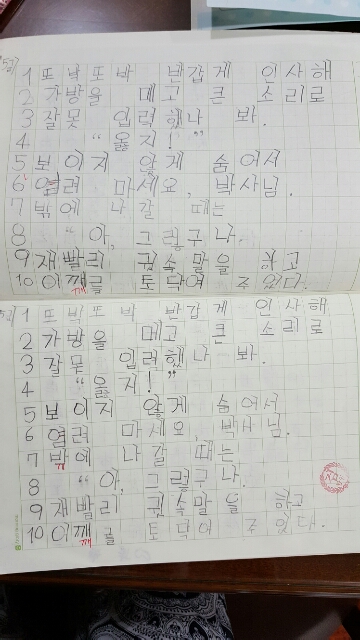 1 또박또박 반갑게 인사해
2 가방을 메고 큰 소리로
3 잘못 입력했나 봐.
4 “옳지!”
5 보이지 않게 숨어서
6 열려 마세요, 박사님.
7 밖에 나갈 때는
8 “아, 그렇구나.
9 재빨리 귓속말을 하고
10 이깨를 토닥여 주었다.
깨
1 또박또박 반갑게 인사해
2 가방을 메고 큰 소리로
3 잘못 입력했나 봐.
4 “옳지!”
5 보이지 않게 숨어서
6 열려 마세요, 박사님.
7 밖에 나갈 때는
8 “아, 그렇구나.
9 재빨리 귓속말을 하고
10 이깨를 토닥여 주었다.
깨